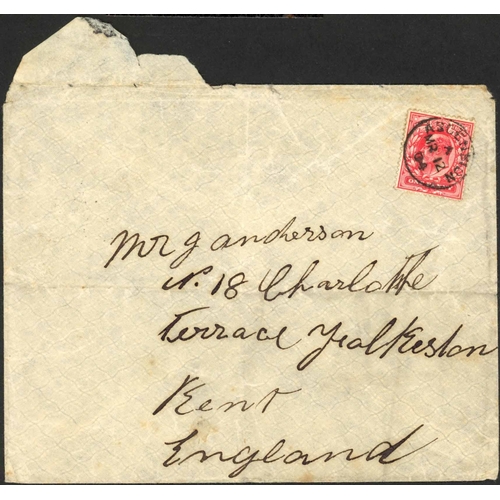 ASCENSION
Mr J anderson
N. 18 Charlotte
Terrace
Kent
England